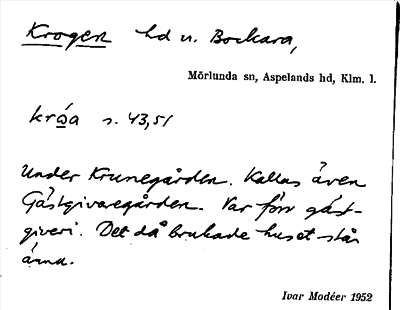 Krogen hd u. Bockara,
Mörlunda sn, Aspelands hd, Klm. l.
s. 43,51
Under Krunegården. Kallas även
Gästgivaregården. Var förr gäst-
giveri. Det då brukade huset står
ännu.
Ivar Modéer 1952